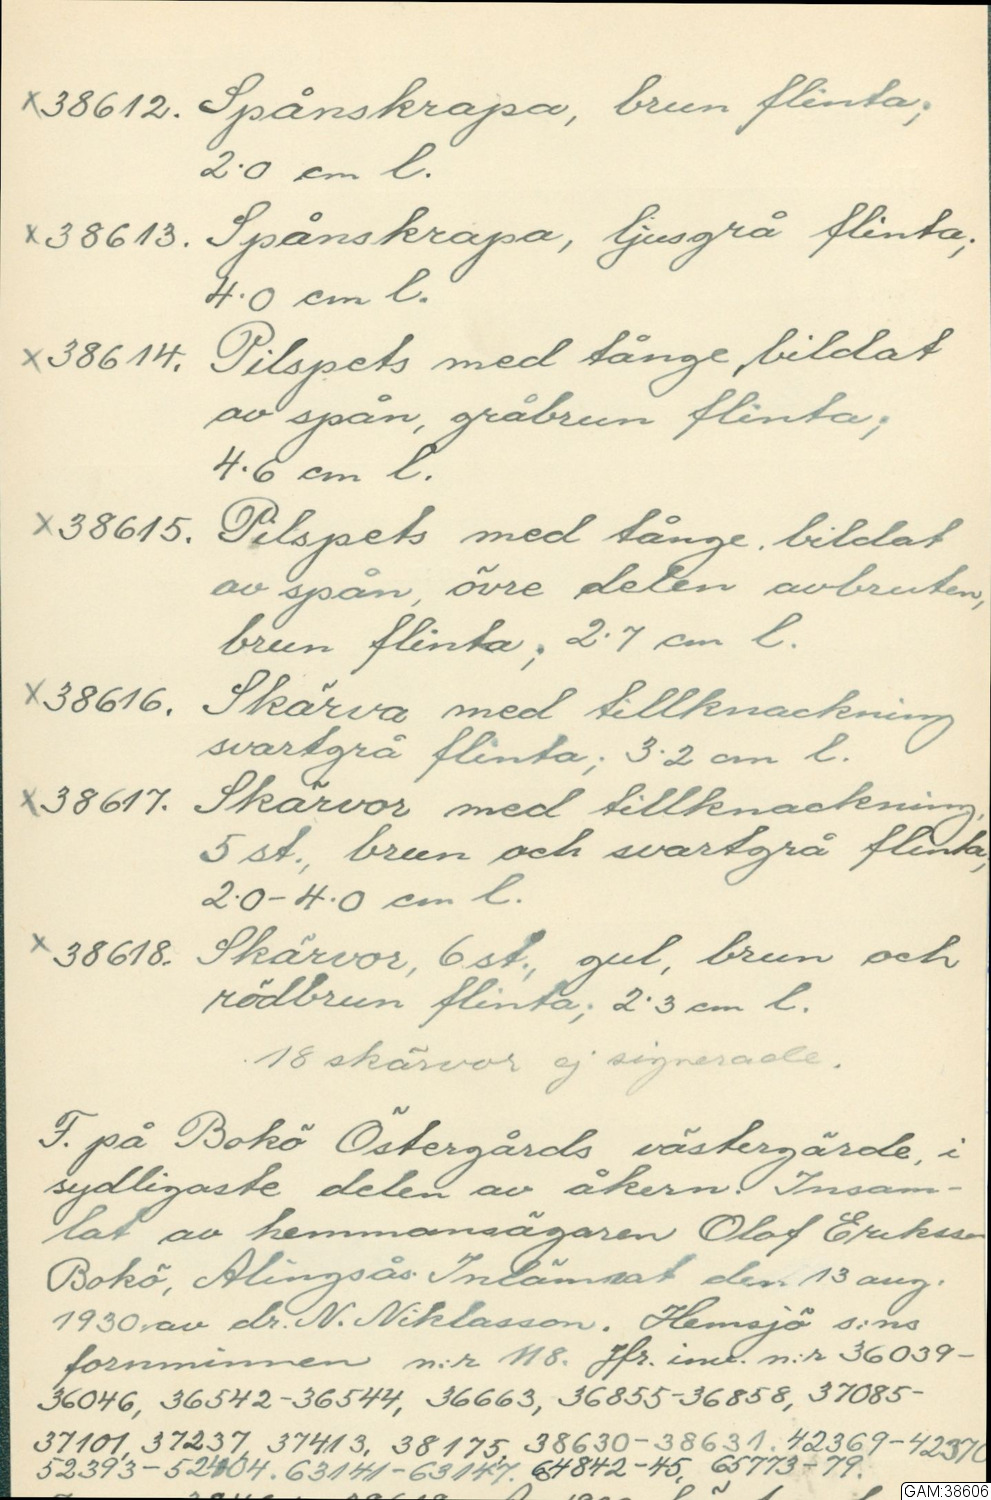 x38612. Spånskrapa, brun flinta;
2·0 cm l.
x38613. Spånskrapa, ljusgrå flinta;
4·0 cm l.
x38614. Pilspets med tånge, bildat
av spån, gråbrun flinta;
4·6 cm l.
x38615. Pilspets med tånge, bildat
av spån, övre delen avbruten,
brun flinta; 2·7 cm l.
x38616. Skärva med tillknackning
svartgrå flinta; 3·2 cm l.
x38617. Skärvor med tillknackning,
5 st., brun och svartgrå flinta;
2·0-4·0 cm l.
x38618. Skärvor, 6 st., gul, brun och
rödbrun flinta; 2·3 cm l.
18 skärvor ej signerade.
F. på Bokö Östergårds västergärde, i
sydligaste delen av åkern. Insam-
lat av hemmansägaren Olof Eriksson
Bokö, Alingsås. Inlämnat den 13 aug.
1930 av dr. N. Niklasson. Hemsjö s:ns
fornminnen n:r 118. Jfr. inv. n:r 36039-
36046, 36542-36544, 36663, 36855-36858, 37085-
37101, 37237, 37413, 38175, 38630-38631. 42369-42370
52393-52404. 63141-63147. 64842-45, 65773-79.
GAM:38606